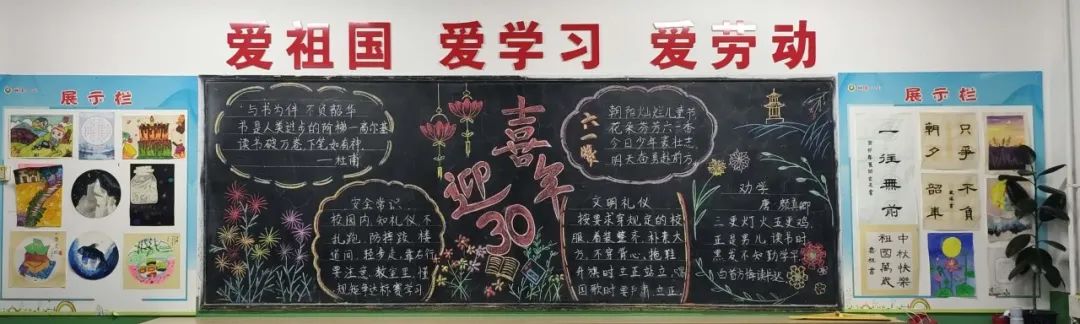 爱祖国 爱学习 爱劳动
展示栏
与书为伴 不负韶华
书是人类进步的阶梯—高尔基
读书破万卷,下笔如有神.
——杜甫
安全常识.
校园内,知礼仪,不
扎跑,防摔跤,楼
道间,轻步走,靠右行
要注意,教室里,懂
喜
迎
30
年
六一颂
朝阳灿烂儿童节
花朵芬芳六一香
今日少年
明天奋勇赴前方
文明礼仪
按要求穿规定的校
服,着装整齐,朴素大
方,不穿背心,拖鞋
升旗时立正站立,唱
国歌时要严肃,立正
劝学
唐 颜真卿
三更灯火五更鸡,
正是男儿读书时
黑发不知勤学早
白首方悔读书迟
展示栏
一往無前
只爭朝夕
不負韶華
中秋快樂
祖國萬歲